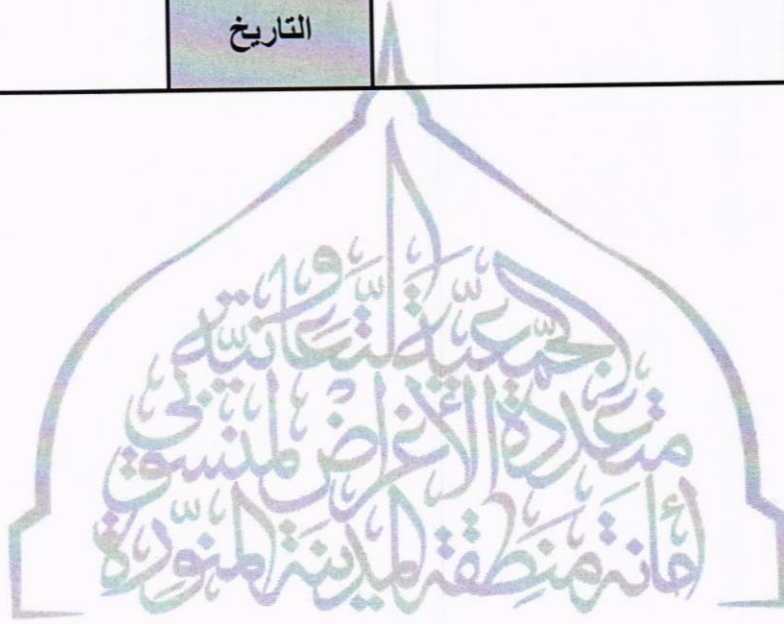 التاريخ
الجمعية التعاونية
متعددة الأغراض لمنسوبي
أمانة منطقة المدينة المنورة